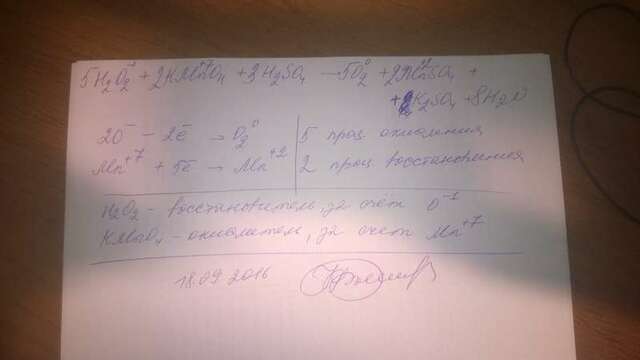 5H₂O₂⁻¹ + 2KMn⁺⁷O₄ + 3H₂SO₄ → 5O₂⁰ + 2Mn⁺²SO₄ +
+ K₂SO₄ + 8H₂O
2O⁻ − 2ē → O₂⁰ | 5 проц. окисления
Mn⁺⁷ + 5ē → Mn⁺² | 2 проц. восстановления
H₂O₂ – восстановитель, за счёт O⁻¹
KMnO₄ – окислитель, за счет Mn⁺⁷
18.09.2016